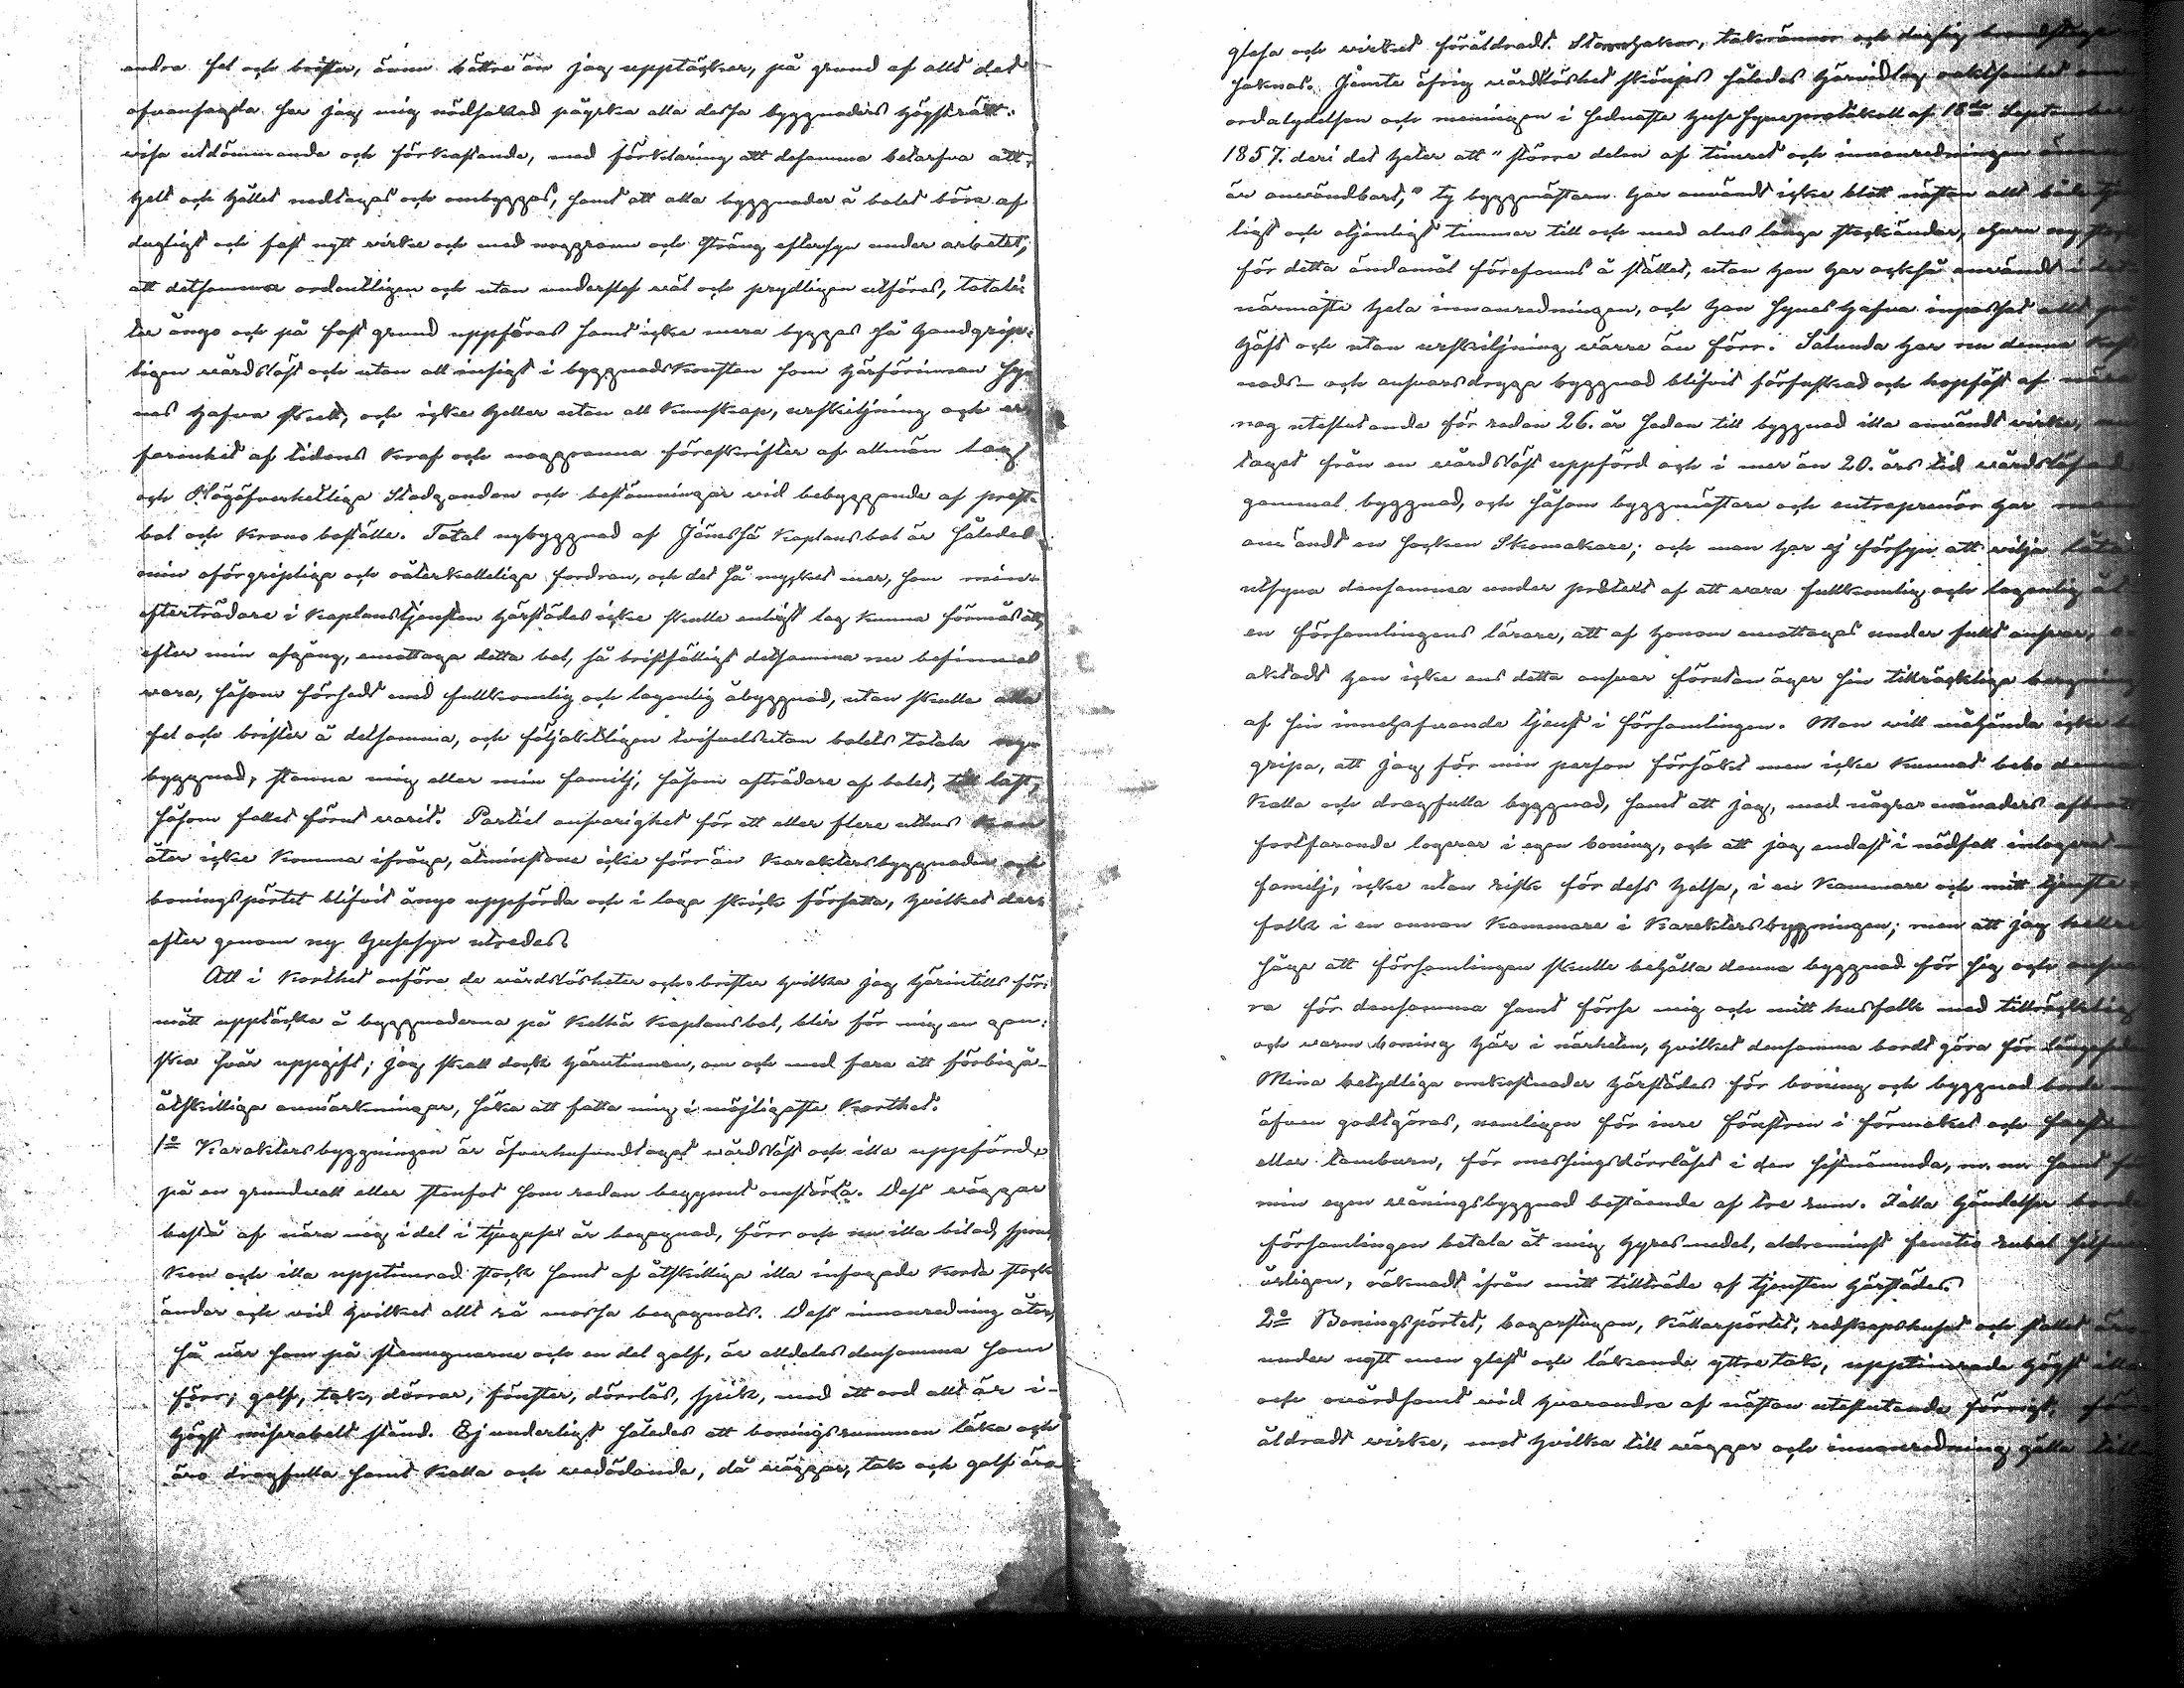 andra fel och brister, ännu bättre än jag upptäcker, på grund af allt det
ofvansagda ser jag mig nödsakad påyrka alla dessa byggnaders högsträtt-
visa utdömmande och förkastande, med förklaring att desamma betarfva att,
helt och hållet nedtagas och ombyggas, samt att alla byggnader å bolet böra af
dugligt och fast nytt virke och med noggrann och sträng eftersyn under arbetet,
att detsamma ordentligen och utan underslef väl och prydligen utföras, totali-
ter ånyo och på fast grund uppföras samt icke mera byggas så handgrip-
ligen vårdslöst och utan all insigt i byggnadskonsten som härförinnan sy-
nes hafva skett, och icke heller utan all kunskap, urskiljning och er-
farenhet af tidens kraf och noggranna föreskrifter af allmän lag
och Högöfverhetliga Stadganden och bestämningar vid bebyggande af prest-
bol och Kronoboställe. Total nybyggnad af Jämsä Kaplansbol är således
min oförgripliga och oåterkalleliga fordran, och det så mycket mer, som min
efterträdare i kaplanstjensten härstädes icke skulle enligt lag kunna förmås att,
efter min afgång, emottaga detta bol, så bristfälligt detsamma nu befinnes
vara, såsom försedt med fullkomlig och lagenlig åbyggnad, utan skulle alla
fel och brister å detsamma, och följaktligen tvifvelsutan bolets totala ny-
byggnad, stanna mig eller min familj, såsom afträdare af bolet, till last,
såsom fallet förut varit. Partiel ansvarighet för ett eller flere uthus kan
åter icke komma ifråga, åtminstone icke förrän Karaktersbyggnaden och
boningspörtet blifvit ånyo uppförda och i laga skick försatta, hvilket der-
efter genom ny Husesyn utredes.
Att i korthet anföra de vårdslösheter och brister hvilka jag härintills för-
mått upptäcka å byggnaderna på Kelhä Kaplansbol, blir för mig en gan-
ska svår uppgift; jag skall dock härutinnan, om och med fara att förbigå
åtskilliga anmärkningar, söka att fatta mig i möjligaste korthet.
1o Karaktersbyggningen är öfverhufvudtaget vårdslöst och illa uppförd,
på en grundvall eller stenfot som redan begynt omstörta. Dess väggar
bestå af nära nog idel i tjugusex år begagnad, förr och nu illa bilad,
och illa upptimrad stock samt af åtskilliga illa infogade korta stock
ändar och vid hvilket allt rå mossa begagnats. Dess innanredning åter,
så när som på stenugnarne och en del golf, är alldeles densamma som
förr; golf, tak, dörrar, fönster, dörrlås, spik, med ett ord allt är i
högst miserabelt stånd. Ej underligt således att boningsrummen läka och
äro dragfulla samt kalla och vedödande, då väggar, tak och golf äro
glesa och virket föråldradt. Stormhakar, takrännor och duglig
saknas. Jämte öfrig vårdslöshet skönjes således härvidlag
ordalydelsen och meningen i sednaste husesyneprotokoll af 18de September
1857. deri det heter att "större delen af timret och innanredningen ännu
är användbart," ty byggmästaren har användt icke blott nästan allt
ligt och otjenligt timmer till och med alns långa stockändar,
för detta ändamål förefanns å stället, utan han har också användt i det
närmaste hela innanredningen, och han synes hafva inpassat allt på
höft och utan urskiljning värre än förr. Sålunda har nu denna kost
nads- och ansvarsdryga byggnad blifvit förfuskad och hopfäst af nära
nog uteslutande för redan 26. år sedan till byggnad illa användt virke,
taget från en vårdslöst uppförd och i mer än 20. års tid vårdslösad
gammal byggnad, och såsom byggmästare och entreprenör har man
användt en socken Skomakare; och man har ej försyn att vilja låta
utsyna densamma under pretext af att vara fullkomlig och lagenlig åt
en församlingens lärare, att af honom emottagas under fullt ansvar,
aktadt han icke ens detta ansvar förutan äger sin tillräckliga bergning
af sin innehafvande tjenst i församlingen. Man vill måhända icke be
gripa, att jag för min person försökt men icke kunnat bebo denna
kalla och dragfulla byggnad, samt att jag, med några månaders
fortfarande logerar i egen boning, och att jag endast i nödfall inlogerat
familj, icke utan risk för dess helsa, i en kammare och mitt tjenste
folk i en annan kammare i Karaktersbyggningen; men att jag hellre
såge att församlingen skulle behålla denna byggnad för sig och ansva
ra för densamma samt förse mig och mitt husfolk med tillräcklig
och varm boning här i närheten, hvilket densamma bordt göra för längesedan
Mina betydliga omkostnader härstädes för boning och byggnad borde
äfven godtgöras, nemligen för inre fönstren i förmaket och
eller tamburn, för messingsdörrlåset i den sistnämnda, m. m. samt för
min egen våningsbyggnad bestående af tre rum. I alla händelser borde
församlingen betala åt mig hyresmedel, aldraminst femtio rubel silfver
årligen, räknadt ifrån mitt tillträde af tjensten härstädes.
2o Boningspörtet, bagarstugan, källarpörtet, redskapshuset och stallet äro
under nytt men glest och läkande yttre tak, upptimrade högst illa
och ovårdsamt vid hvarandra af nästan uteslutande förrigt, för
åldradt virke, mot hvilka till väggar och innanredning gälla till